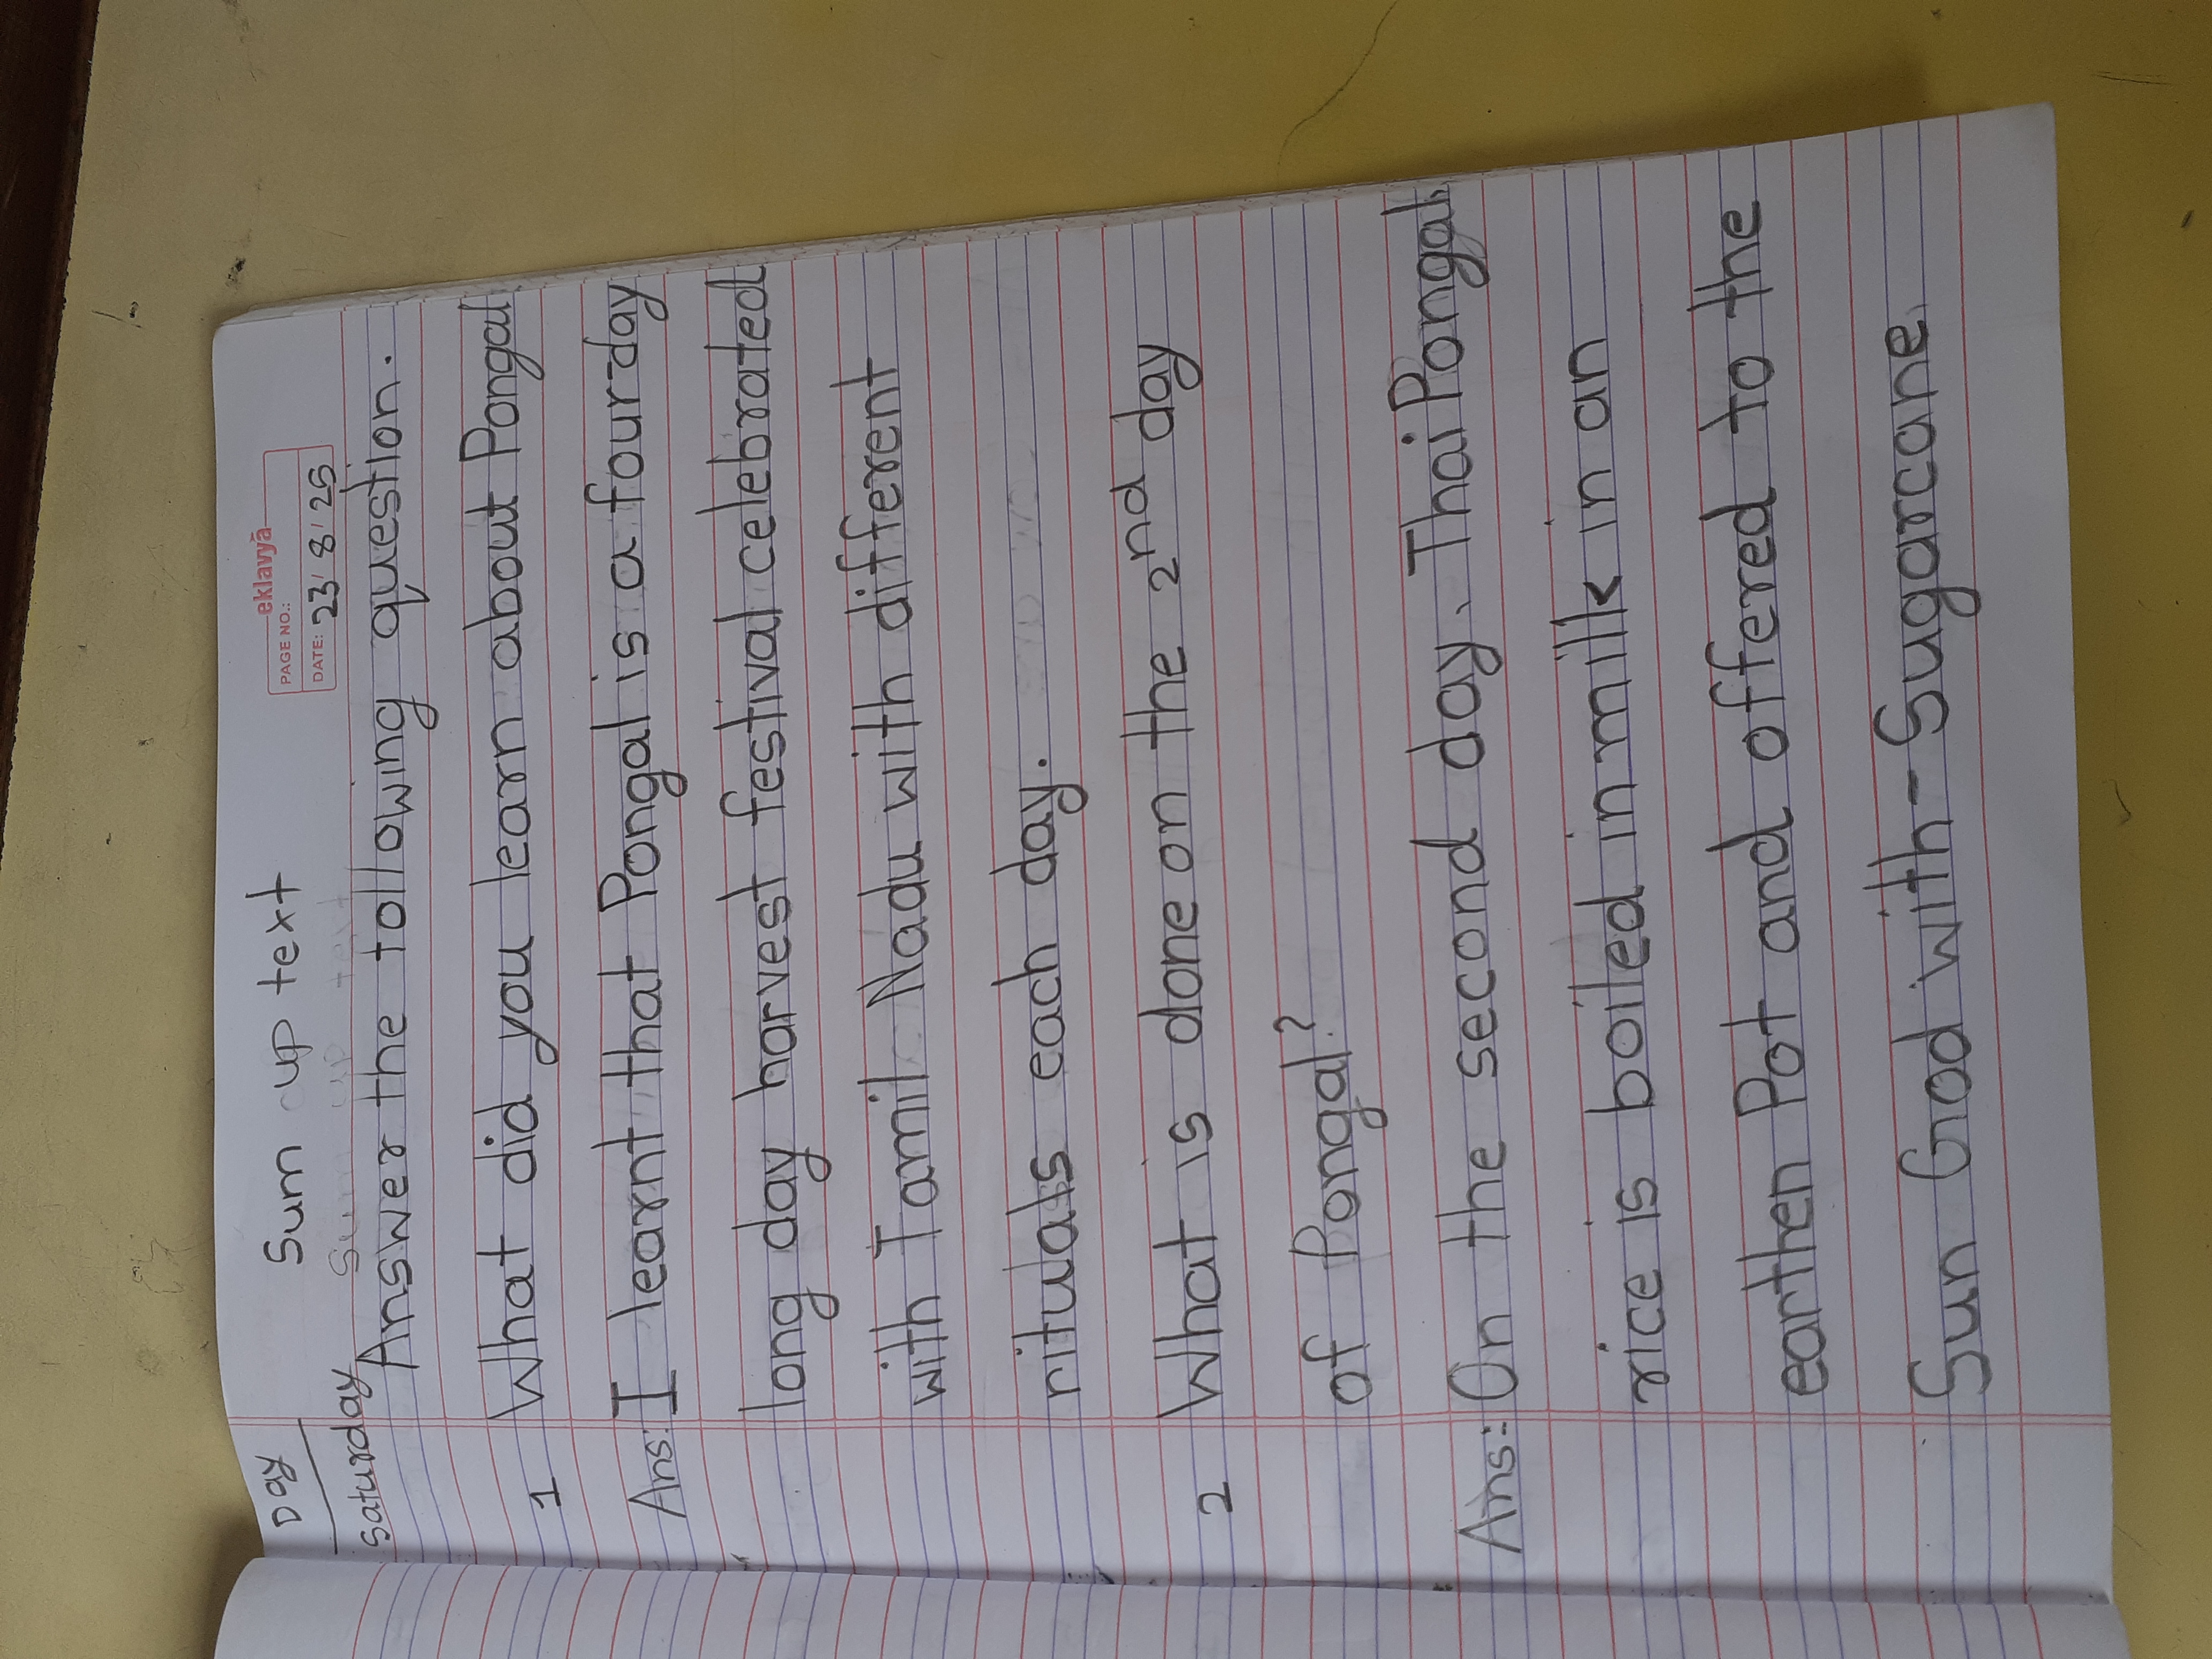 eklavyā
PAGE NO.:
DATE: 23/8/25
Day
Sum up text
Saturday
Answer the following question.
1 What did you learn about Pongal
Ans: I learnt that Pongal is a four day
long day harvest festival celebrated
with Tamil Nadu with different
rituals each day.
2 What is done on the 2nd day
of Pongal?
Ans:- On the second day, Thai Pongal,
rice is boiled in millk in an
earthen Pot and offered to the
Sun God with - Sugarcane.